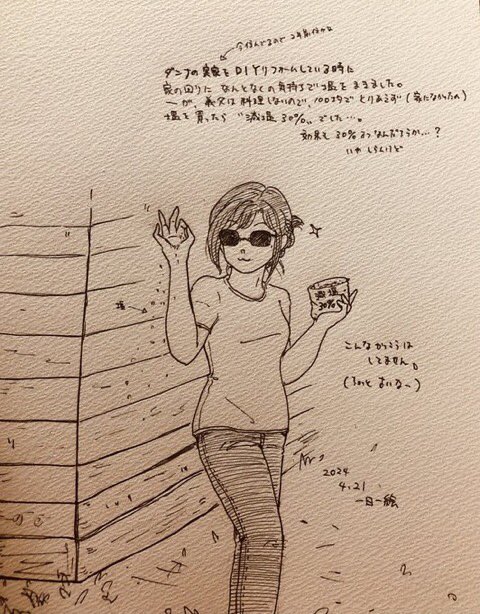 今住んでるので 2年前位かな
ダンナの実家をDIYリフォームしている時に
家の回りに なんとなくの気持ちで塩をまきました。
が、義父は料理しないので、100均で とりあえず (家になかったの)
塩を買ったら "減塩30%" でした…。
効果も30%るつなんだろうか…?
いや しらんけど
塩
減塩
30%
こんなかっこうは
してません。
(もっと
2024
4.21
一日一絵